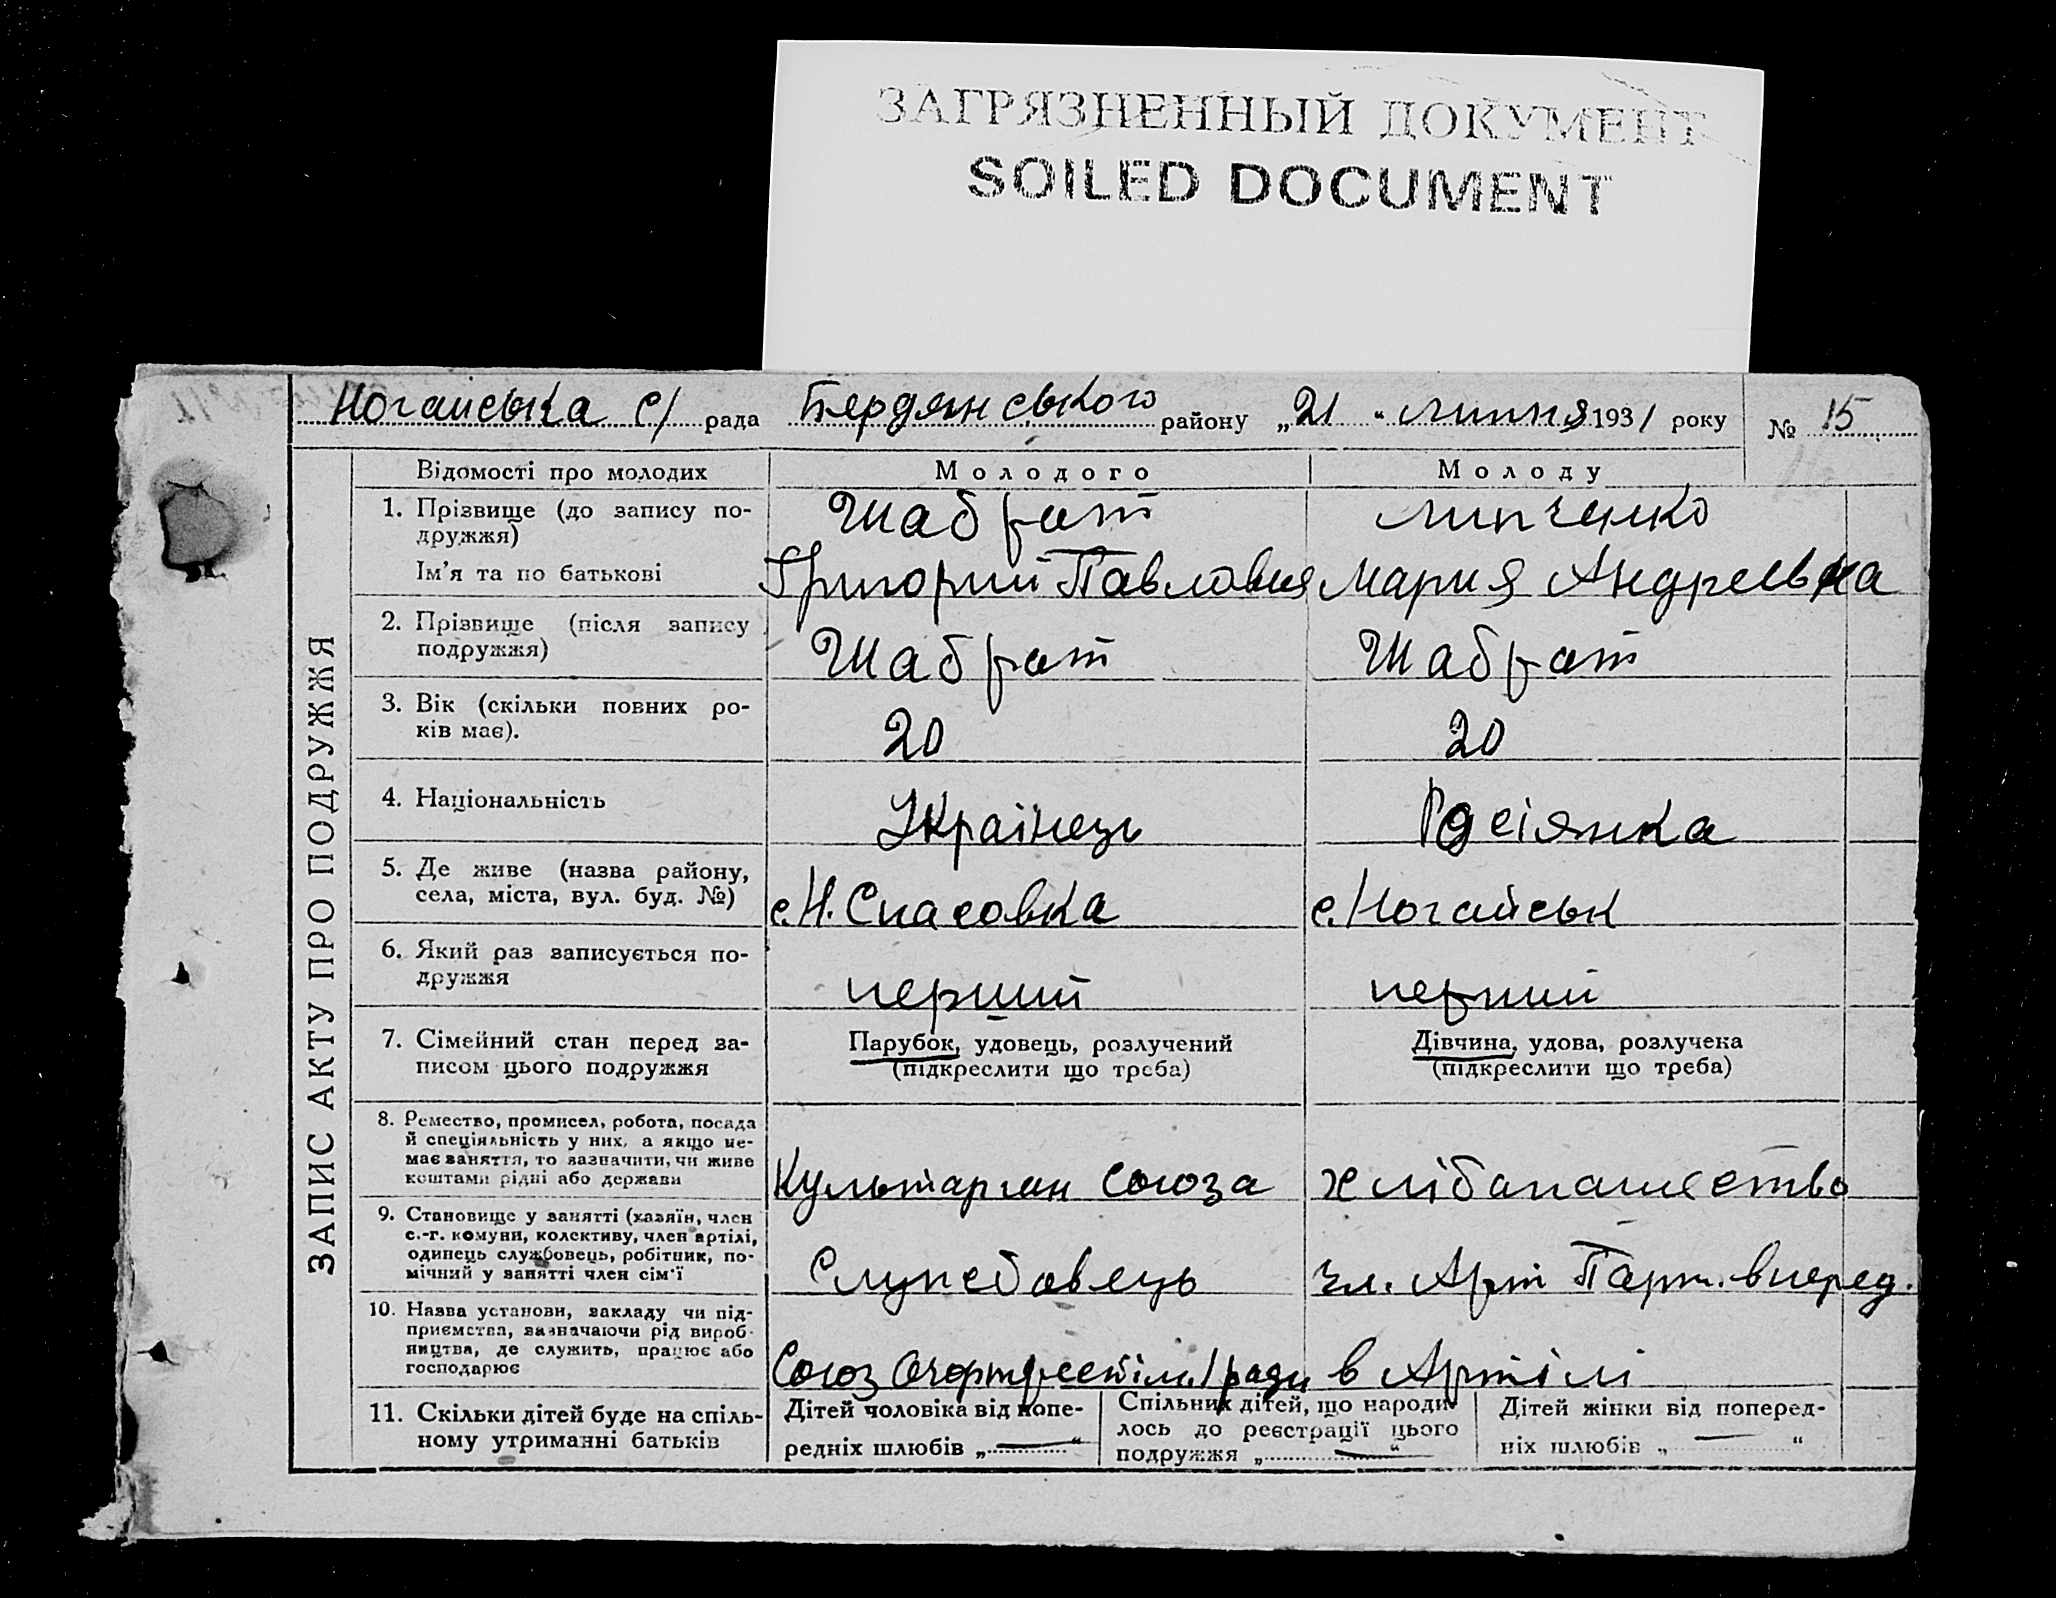 ЗАГРЯЗНЕННЫЙ ДОКУМЕНТ
SOILED DOCUMENT
Ногайська с/ рада Бердянського району „21“ липня 1931 року № 15
ЗАПИС АКТУ ПРО ПОДРУЖЖЯ
Відомості про молодих Молодого Молоду
1. Прізвище (до запису по-
дружжя) Шабрат Липченко
Ім'я та по батькові Григорий Павловия Мария Андреевна
2. Прізвище (після запису
подружжя) Шабрат Шабрат
3. Вік (скільки повних ро-
ків має). 20 20
4. Національність Українець Росіянка
5. Де живе (назва району,
села, міста, вул. буд. №) с. Н. Спасовка с. Ногайськ
6. Який раз записується по-
дружжя перший перший
7. Сімейний стан перед за-
писом цього подружжя
Парубок, удовець, розлучений
(підкреслити що треба)
Дівчина, удова, розлучена
(підкреслити що треба)
8. Ремество, промисел, робота, посада
й спеціяльність у них, а якщо не-
має заняття, то зазначити, чи живе
коштами рідні або держави
Культарган союза хлібапашество
9. Становище у занятті (хазяїн, член
с.-г. комуни, колективу, член артілі,
одинець службовець, робітник, по-
мічний у занятті член сім'ї
Службовець чл. Арт Парт. вперед.
10. Назва установи, закладу чи під-
приємства, зазначаючи рід вироб-
ництва, де служить, працює або
господарює
Союз в Артілі
11. Скільки дітей буде на спіль-
ному утриманні батьків
Дітей чоловіка від попе-
редніх шлюбів „—“
Спільних дітей, що народи-
лось до реєстрації цього
подружжя „—“
Дітей жінки від поперед-
ніх шлюбів „—“